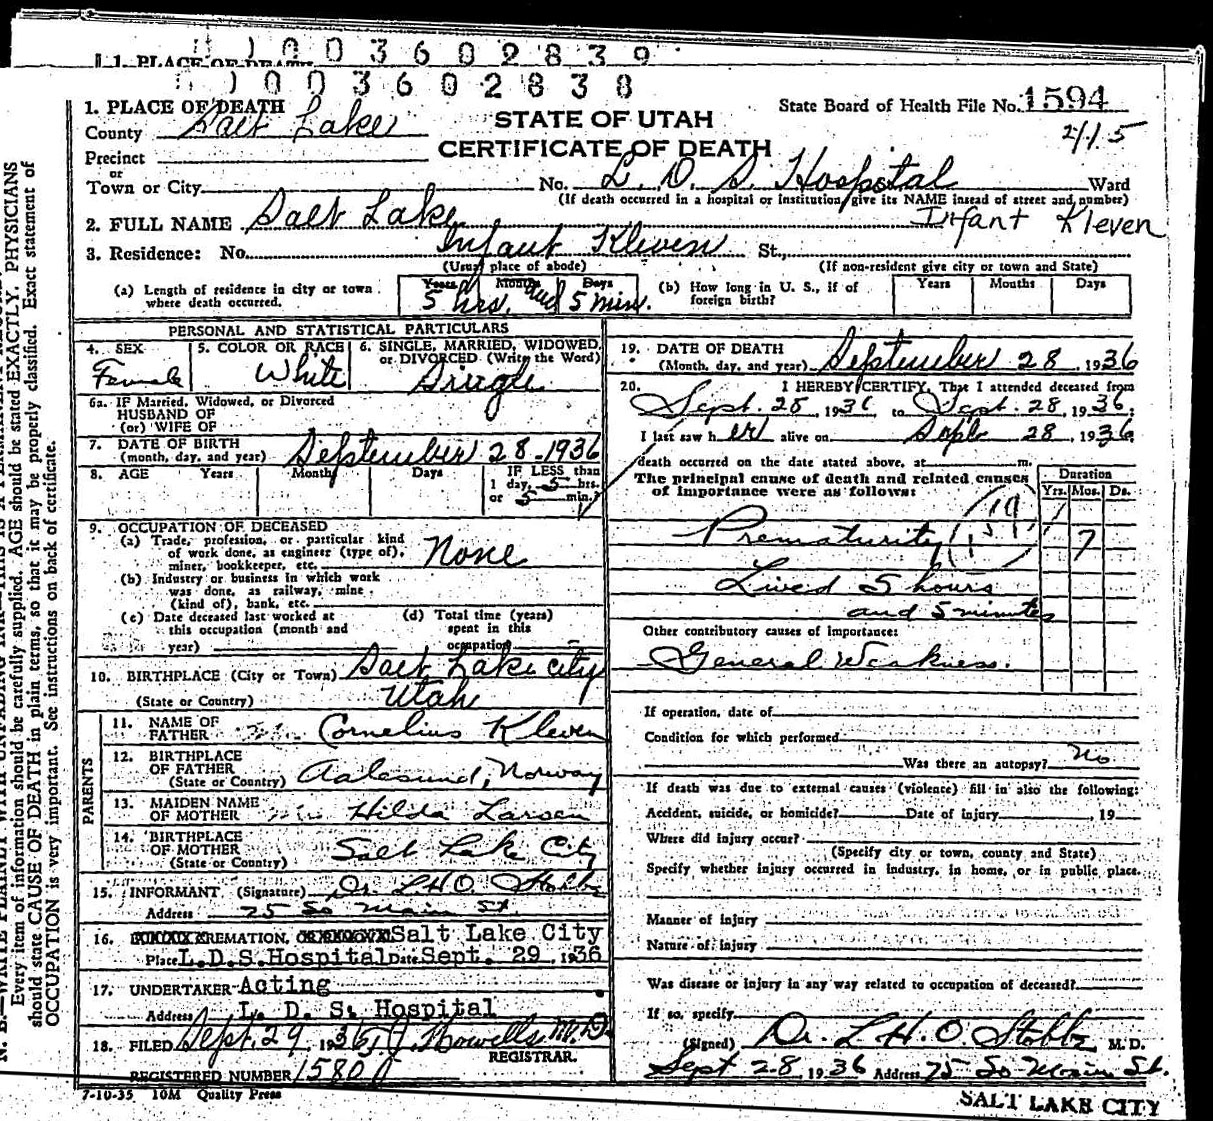 1003602839
1. PLACE OF DEATH
1003602838
1. PLACE OF DEATH
State Board of Health File No. 1594
County Salt Lake
STATE OF UTAH
2115
CERTIFICATE OF DEATH
Precinct
or
Town or City No. L. D. S. Hospital Ward
(If death occurred in a hospital or institution, give its NAME instead of street and number)
2. FULL NAME Salt Lake Infant Kleven
3. Residence: No. Infant Kleven St.,
(Usual place of abode) (If non-resident give city or town and State)
(a) Length of residence in city or town where death occurred. Years Months Days 5 hrs. and 5 min.
(b) How long in U. S., if of foreign birth? Years Months Days
PERSONAL AND STATISTICAL PARTICULARS
4. SEX Female
5. COLOR OR RACE White
6. SINGLE, MARRIED, WIDOWED, or DIVORCED (Write the Word) Single
6a. IF Married, Widowed, or Divorced
HUSBAND OF
(or) WIFE OF
7. DATE OF BIRTH
(month, day, and year) September 28-1936
8. AGE Years Months Days IF LESS than
1 day, 5 hrs.
or 5 min.?
9. OCCUPATION OF DECEASED
(a) Trade, profession, or particular kind
of work done, as engineer (type of),
miner, bookkeeper, etc. None
(b) Industry or business in which work
was done, as railway, mine
(kind of), bank, etc.
(c) Date deceased last worked at
this occupation (month and
year)
(d) Total time (years)
spent in this
occupation
10. BIRTHPLACE (City or Town) Salt Lake City
(State or Country) Utah
PARENTS
11. NAME OF
FATHER Cornelius Kleven
12. BIRTHPLACE
OF FATHER
(State or Country) Aalesund, Norway
13. MAIDEN NAME
OF MOTHER Hilda Larsen
14. BIRTHPLACE
OF MOTHER
(State or Country) Salt Lake City
15. INFORMANT (Signature) Dr. L H O. Stobbe
Address 75 So Main St.
16. CREMATION, Salt Lake City
Place L.D.S.Hospital Date Sept. 29, 1936
17. UNDERTAKER Acting
Address L. D. S. Hospital
18. FILED Sept. 29 1936 Howells M.D.
REGISTRAR.
REGISTERED NUMBER 1580
7-10-35 10M Quality Press
19. DATE OF DEATH
(Month, day, and year) September 28, 1936
20. I HEREBY CERTIFY, That I attended deceased from
Sept. 28, 1936 to Sept. 28, 1936.
I last saw her alive on Sept 28, 1936
death occurred on the date stated above, at m.
The principal cause of death and related causes
of importance were as follows:
Duration
Yrs. Mos. Ds.
Prematurity 7
Lived 5 hours
and 5 minutes
Other contributory causes of importance:
General Weakness.
If operation, date of
Condition for which performed
Was there an autopsy? No
If death was due to external causes (violence) fill in also the following:
Accident, suicide, or homicide? Date of injury , 19
Where did injury occur?
(Specify city or town, county and State)
Specify whether injury occurred in industry, in home, or in public place.
Manner of injury
Nature of injury
Was disease or injury in any way related to occupation of deceased?
If so, specify
(Signed) Dr. L. H. O. Stobbe M. D.
Sept 28, 1936 Address 75 So Main St.
SALT LAKE CITY
Every item of information should be carefully supplied. AGE should be stated EXACTLY. PHYSICIANS
should state CAUSE OF DEATH in plain terms, so that it may be properly classified. Exact statement of
OCCUPATION is very important. See instructions on back of certificate.